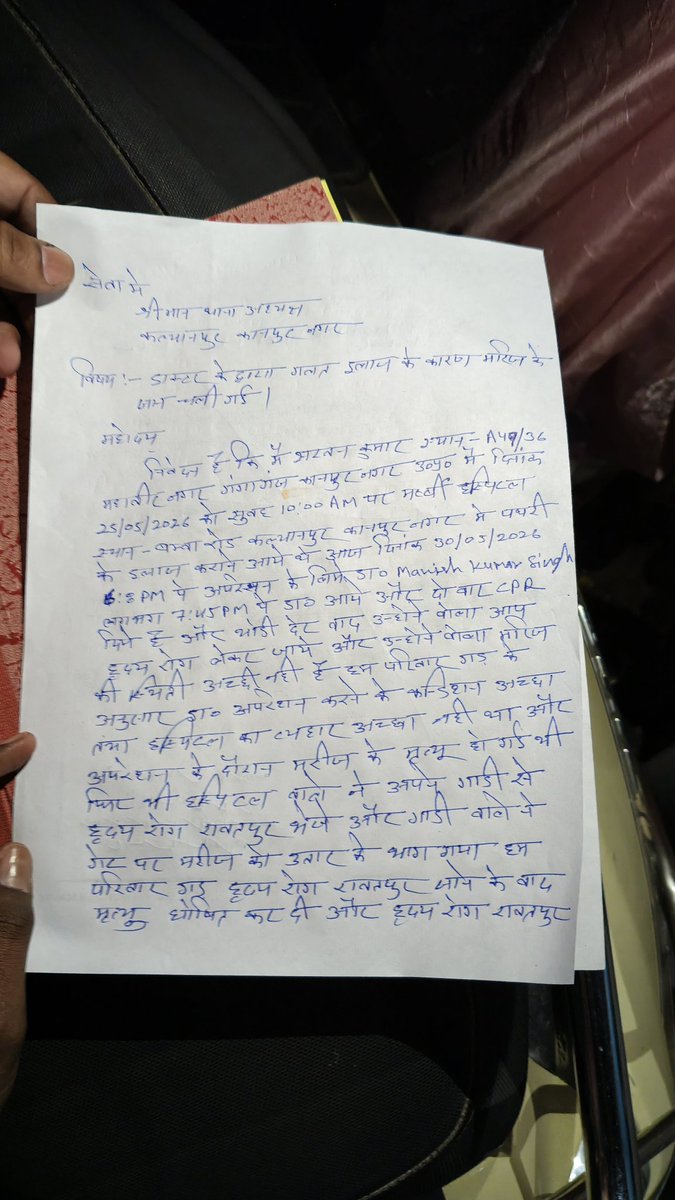 सेवा मे
श्रीमान थाना अध्यक्ष
कल्यानपुर कानपुर नगर
विषय :- डाक्टर के द्वारा गलत इलाज के कारण मरिज के
जान चली गई।
महोदय
निवेदन है कि मै कुमार स्थान - A49/36
महावीर नगर गंगागंज कानपुर नगर उ०प्र० मै दिनांक
25/05/2026 को सुबह 10:00 AM पर हस्पिटल
स्थान - रोड कल्यानपुर कानपुर नगर मे पथरी
के इलाज कराने आये थे आज दिनांक 30/05/2026
6:8 PM पे अपरेशन के लिये डा० Manish Kumar Singh
लगभग 7:45 PM पे डा० आये और दो बार CPR
दिये है और थोडी देर बाद उन्होने बोला आप
हृदय रोग लेकर जाये और उन्होने बोला मरिज
की स्थिती अच्छी नही है हम परिवार गड़ के
अनुसार डा० अपरेशन करने के कन्डिशन अच्छा
तथा हस्पिटल का व्यहार अच्छा नही था और
अपरेशन के दौरान मरीज के मृत्यू हो गई थी
फिर भी हस्पिटल वालो ने अपने गाडी से
हृदय रोग रावतपुर भेजे और गाडी वाले ने
गेट पर मरीज को उतार के भाग गया हम
परिवार गड़ हृदय रोग रावतपुर जाने के बाद
मृत्यू घोषित कर दी और हृदय रोग रावतपुर